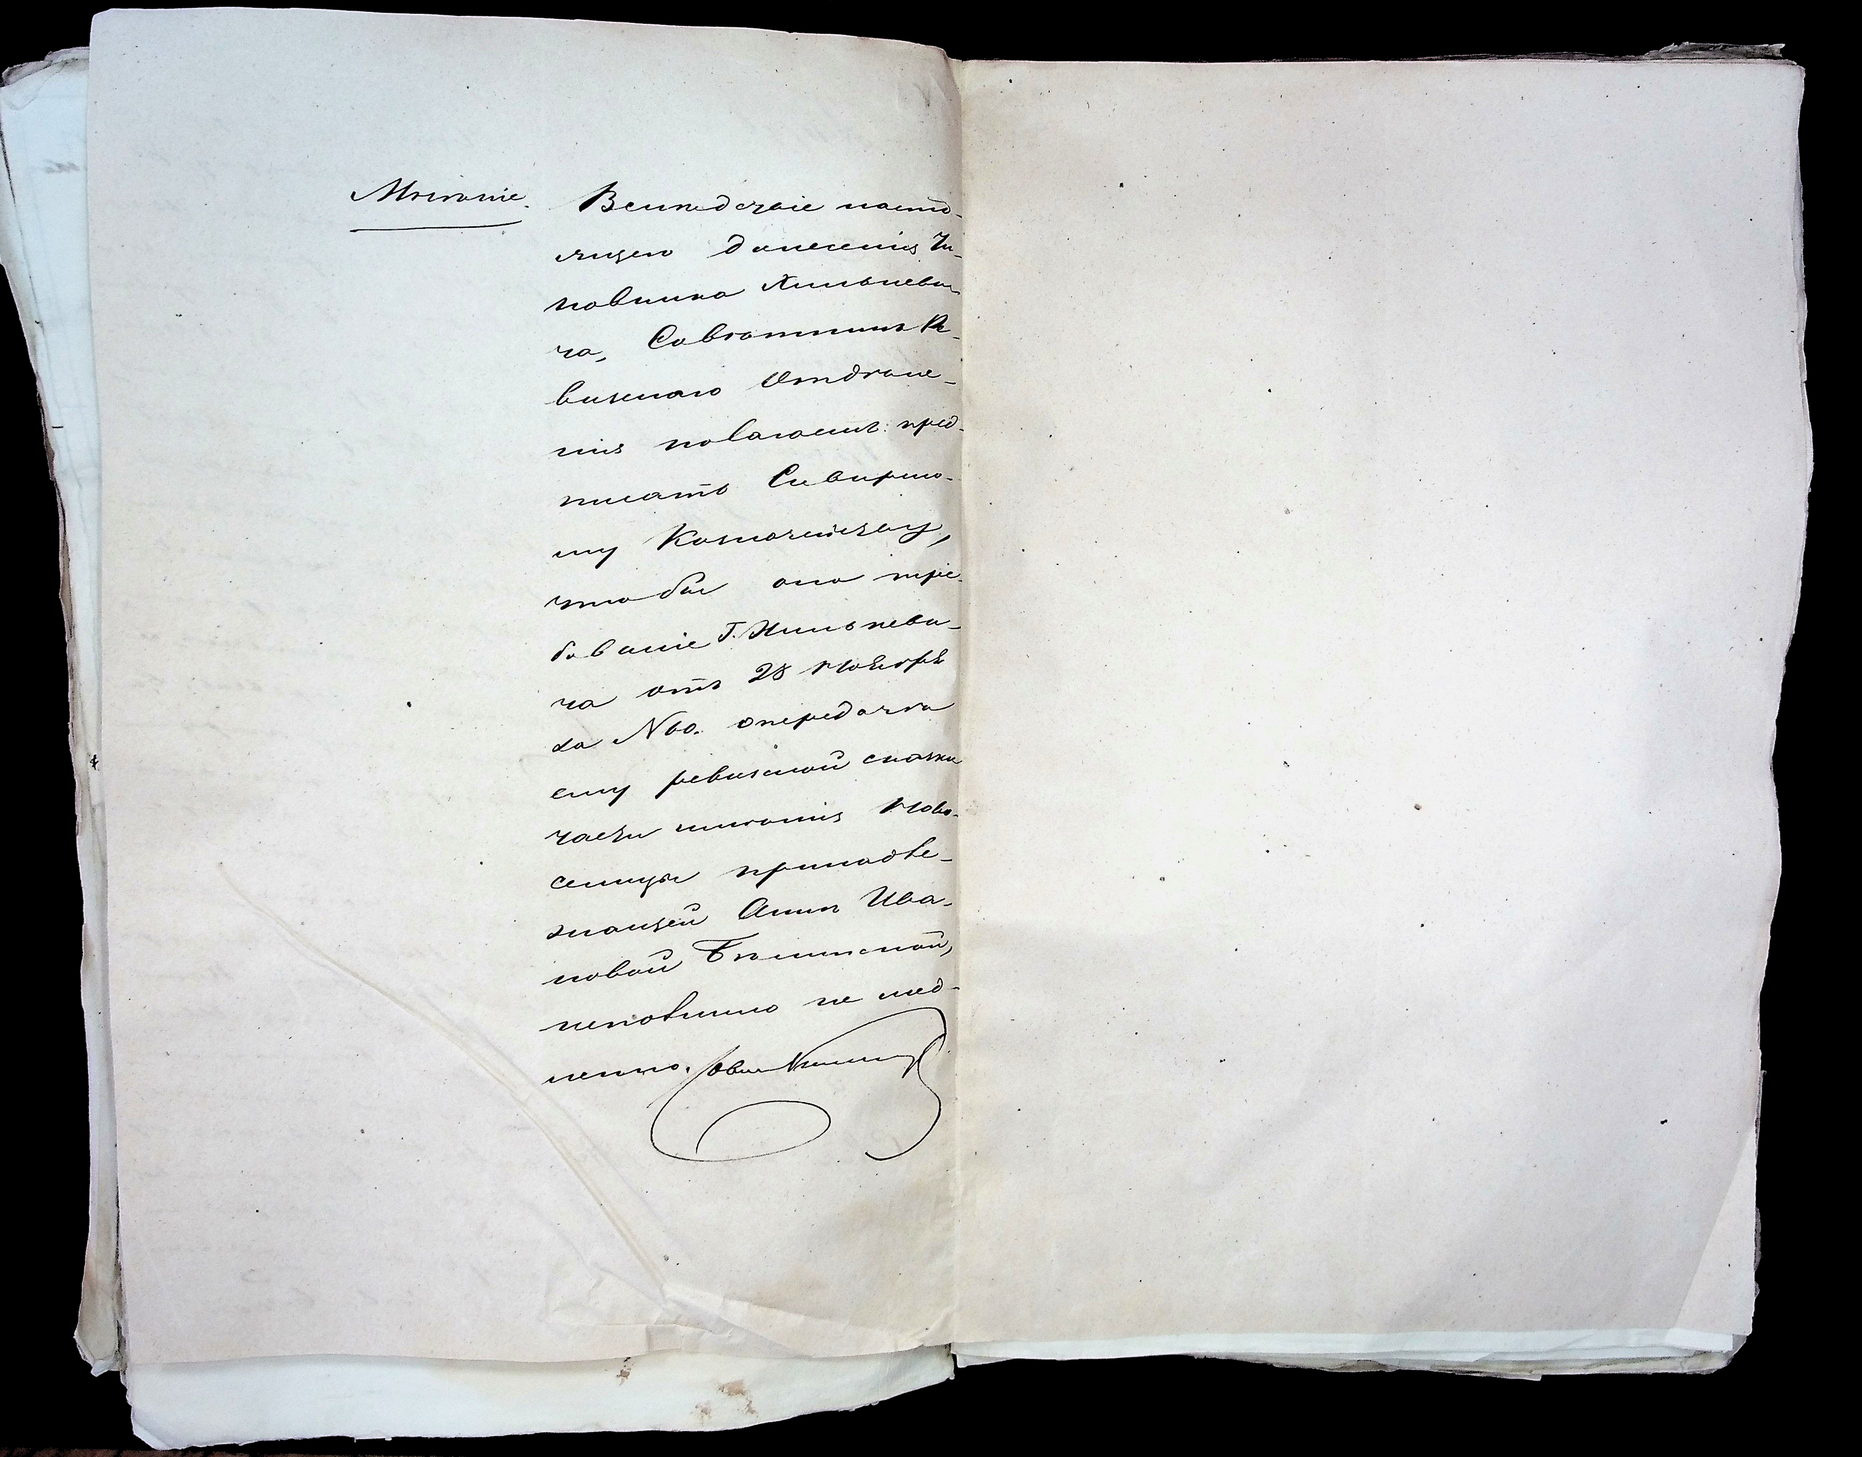 Мнѣніе.
Вслѣдствіе насто-
ящаго донесенія Чи-
новника Хильцеви-
ча, Совѣтникъ Ре-
визскаго Отдѣле-
нія полагаетъ: пред-
писать Сквирско-
му Казначейству,
чтобы оно тре-
бованіе Г. Хильцеви-
ча отъ 28 Ноября
за № 60. о передачѣ
ему ревизской сказки
части имѣнія Ново-
селицы принадле-
жащей Аннѣ Ива-
новой
исполнило не мед-
ленно.